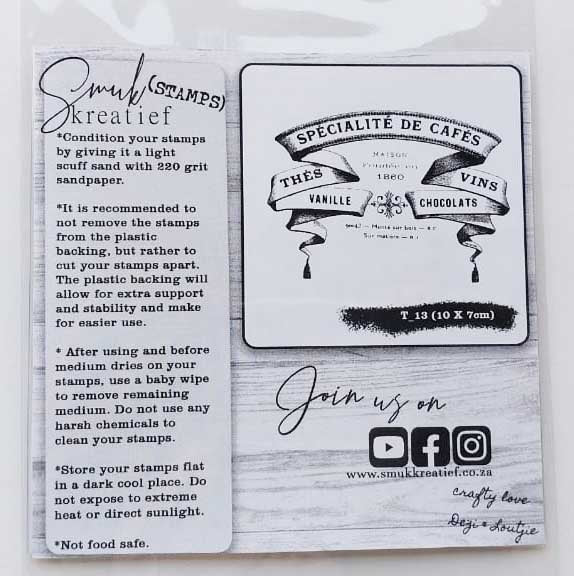 Smuk (STAMPS)
kreatief
*Condition your stamps
by giving it a light
scuff sand with 220 grit
sandpaper.
*It is recommended to
not remove the stamps
from the plastic
backing, but rather to
cut your stamps apart.
The plastic backing will
allow for extra support
and stability and make
for easier use.
* After using and before
medium dries on your
stamps, use a baby wipe
to remove remaining
medium. Do not use any
harsh chemicals to
clean your stamps.
*Store your stamps flat
in a dark cool place. Do
not expose to extreme
heat or direct sunlight.
*Not food safe.
SPÉCIALITÉ DE CAFÉS
MAISON
Fondée en
1860
THÉS
VINS
VANILLE
CHOCOLATS
sur bois
Sur
T_13 (10 X 7cm)
Join us on
www.smukkreatief.co.za
crafty love
Dezi & Loutjie